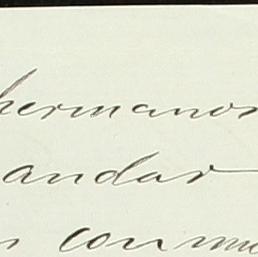 hermanos
andar
con